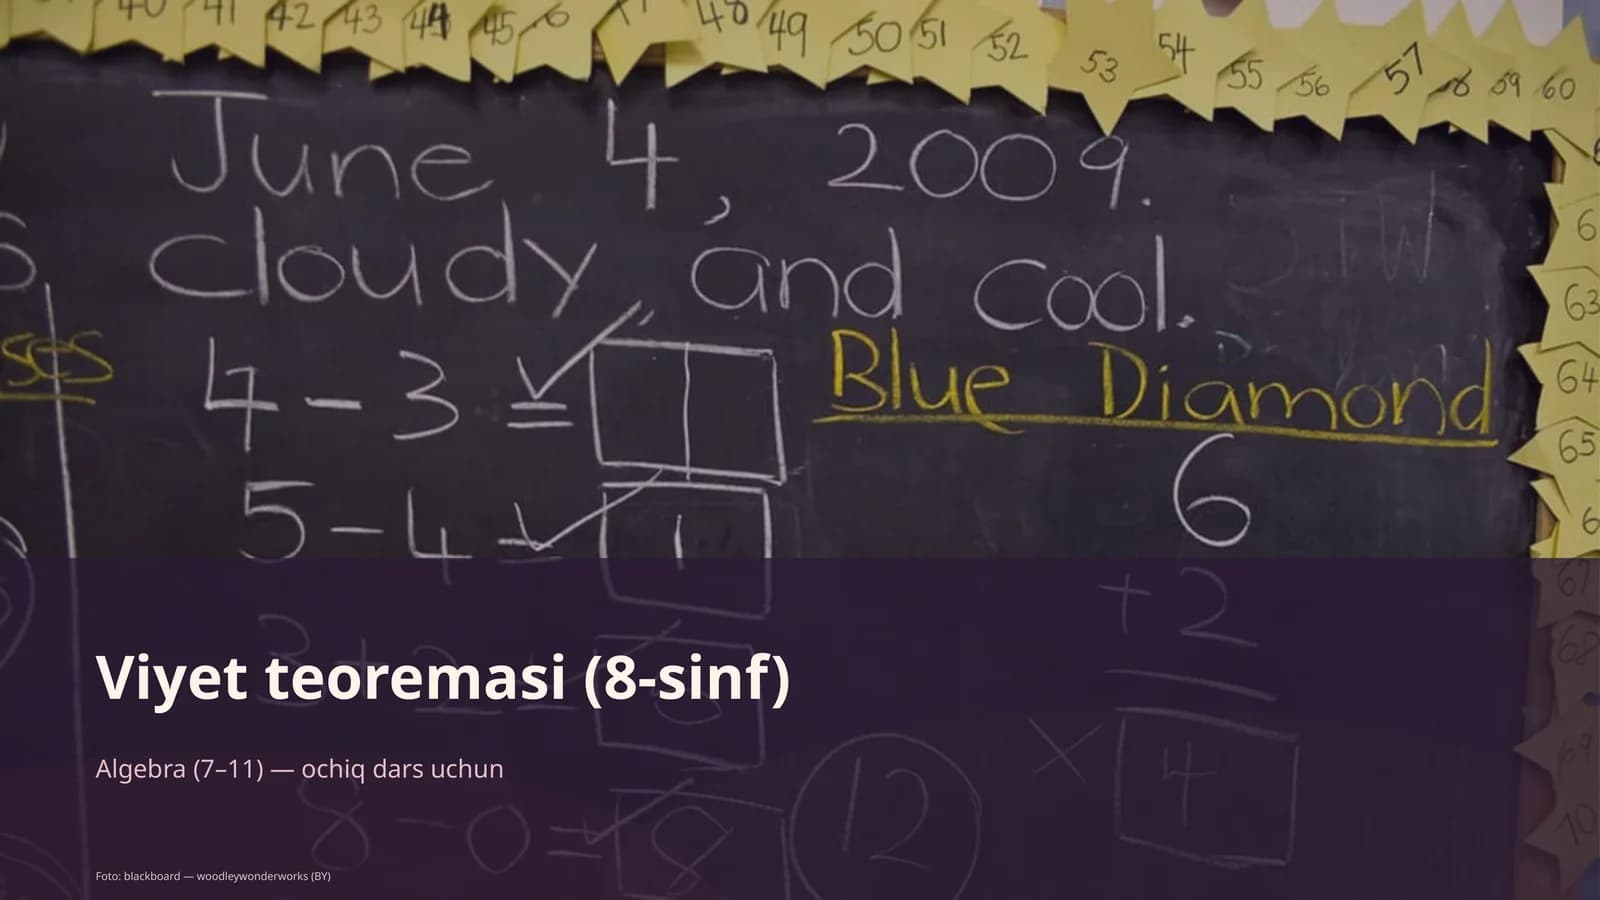 40 41 42 43 44 45 48 49 50 51 52 53 54 55 56 57 59 60
June 4, 2009.
cloudy, and cool.
63
4 - 3 = 1
Blue Diamond
64
5 - 4 = 1
6
65
+2
67
68
Viyet teoremasi (8-sinf)
4
69
Algebra (7–11) — ochiq dars uchun
8 - 0 = 8
12
70
Foto: blackboard — woodleywonderworks (BY)